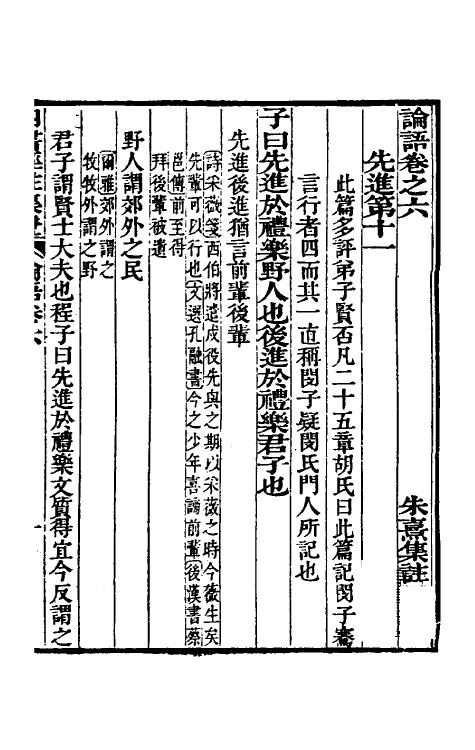 論語卷之六
朱熹集註
先進第十一
此篇多評弟子賢否凡二十五章胡氏曰此篇記閔子騫
言行者四而其一直稱閔子疑閔氏門人所記也
子曰先進於禮樂野人也後進於禮樂君子也
先進後進猶言前輩後輩
詩采薇箋西伯將遣戍役先與之期以采薇之時今薇生矣
先輩可以行也文選孔融書今之少年喜謗前輩後漢書蔡
邕傳前至得
拜後輩被遺
野人謂郊外之民
爾雅郊外謂之
牧牧外謂之野
君子謂賢士大夫也程子曰先進於禮樂文質得宜今反謂之